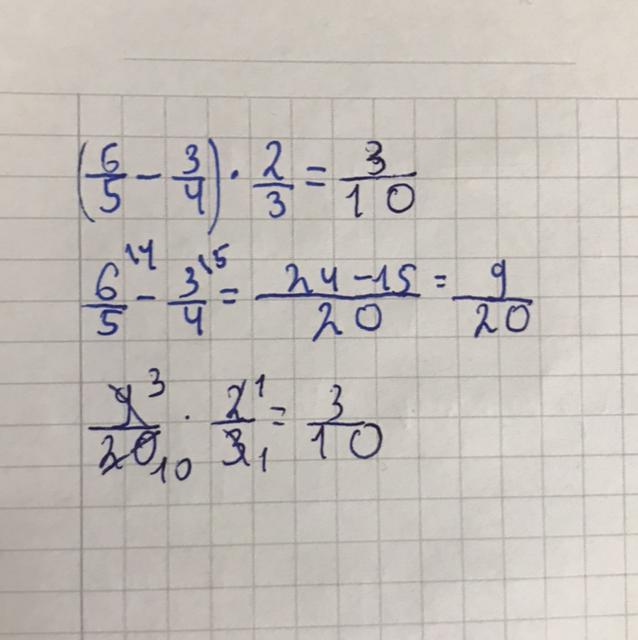 (6/5 - 3/4) · 2/3 = 3/10
6/5 \4 - 3/4 \5 = 24-15/20 = 9/20
9 3/20 10 · 2 1/3 1 = 3/10